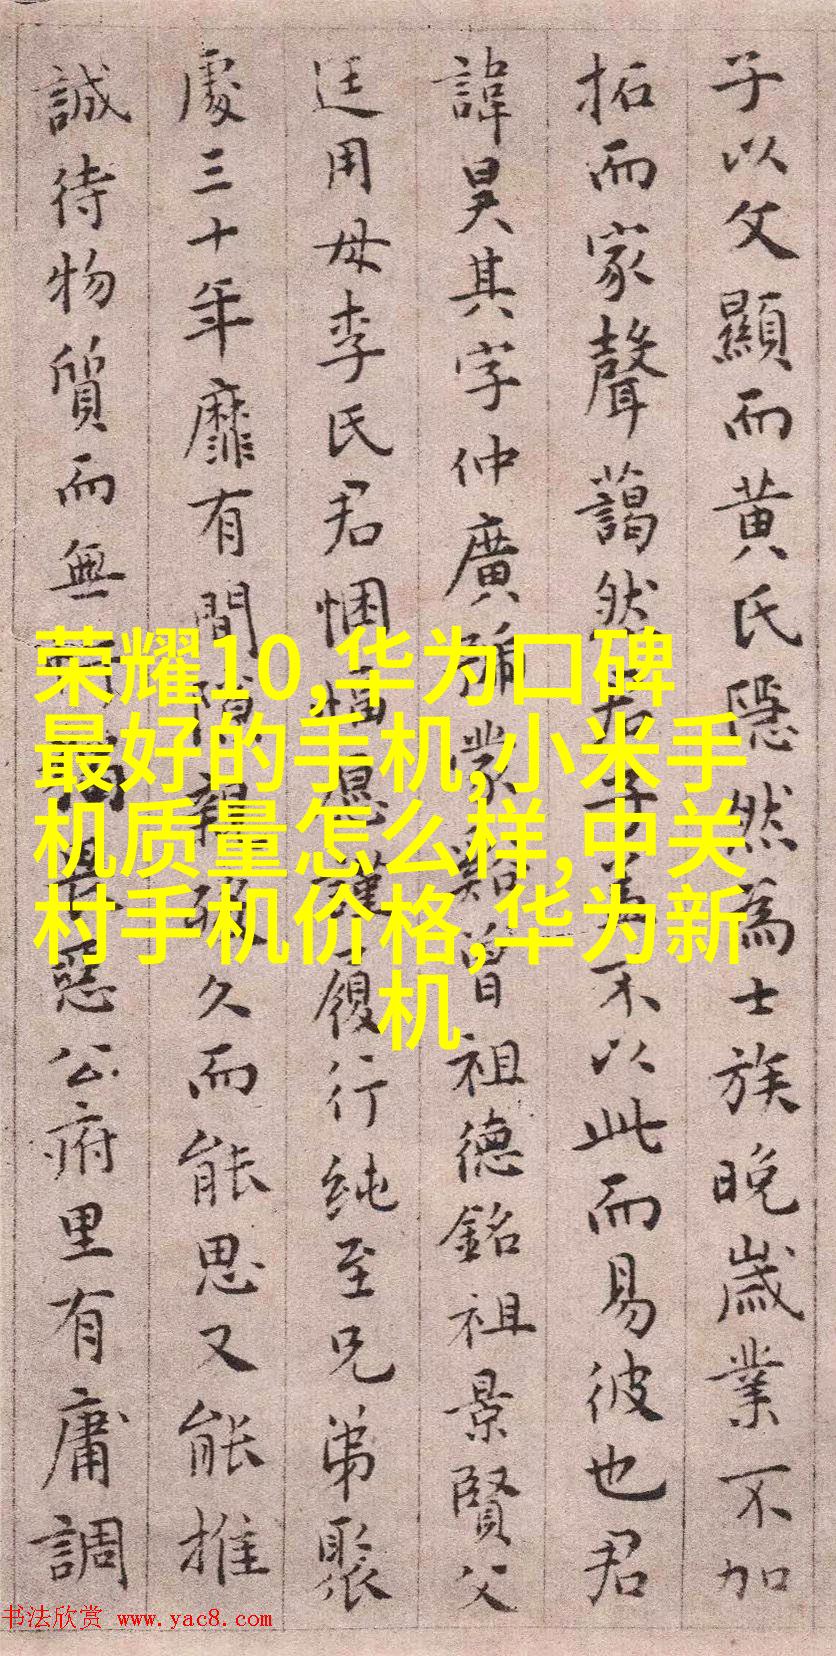 子以文顯而黄氏隱然為士族晚歲業不加
拓而家聲藹然君子盖不以此而易彼也君
諱昊其字仲廣號蒙谿曾祖德銘祖景賢父
廷用母李氏君悃愊愿謹履行純至兄弟聚
處三十年靡有間隙親戚久而能思又能推
誠待物質而無惡公府里有庸調
荣耀10,华为口碑
最好的手机,小米手
机质量怎么样,中关
村手机价格,华为新
机
书法欣赏 www.yac8.com